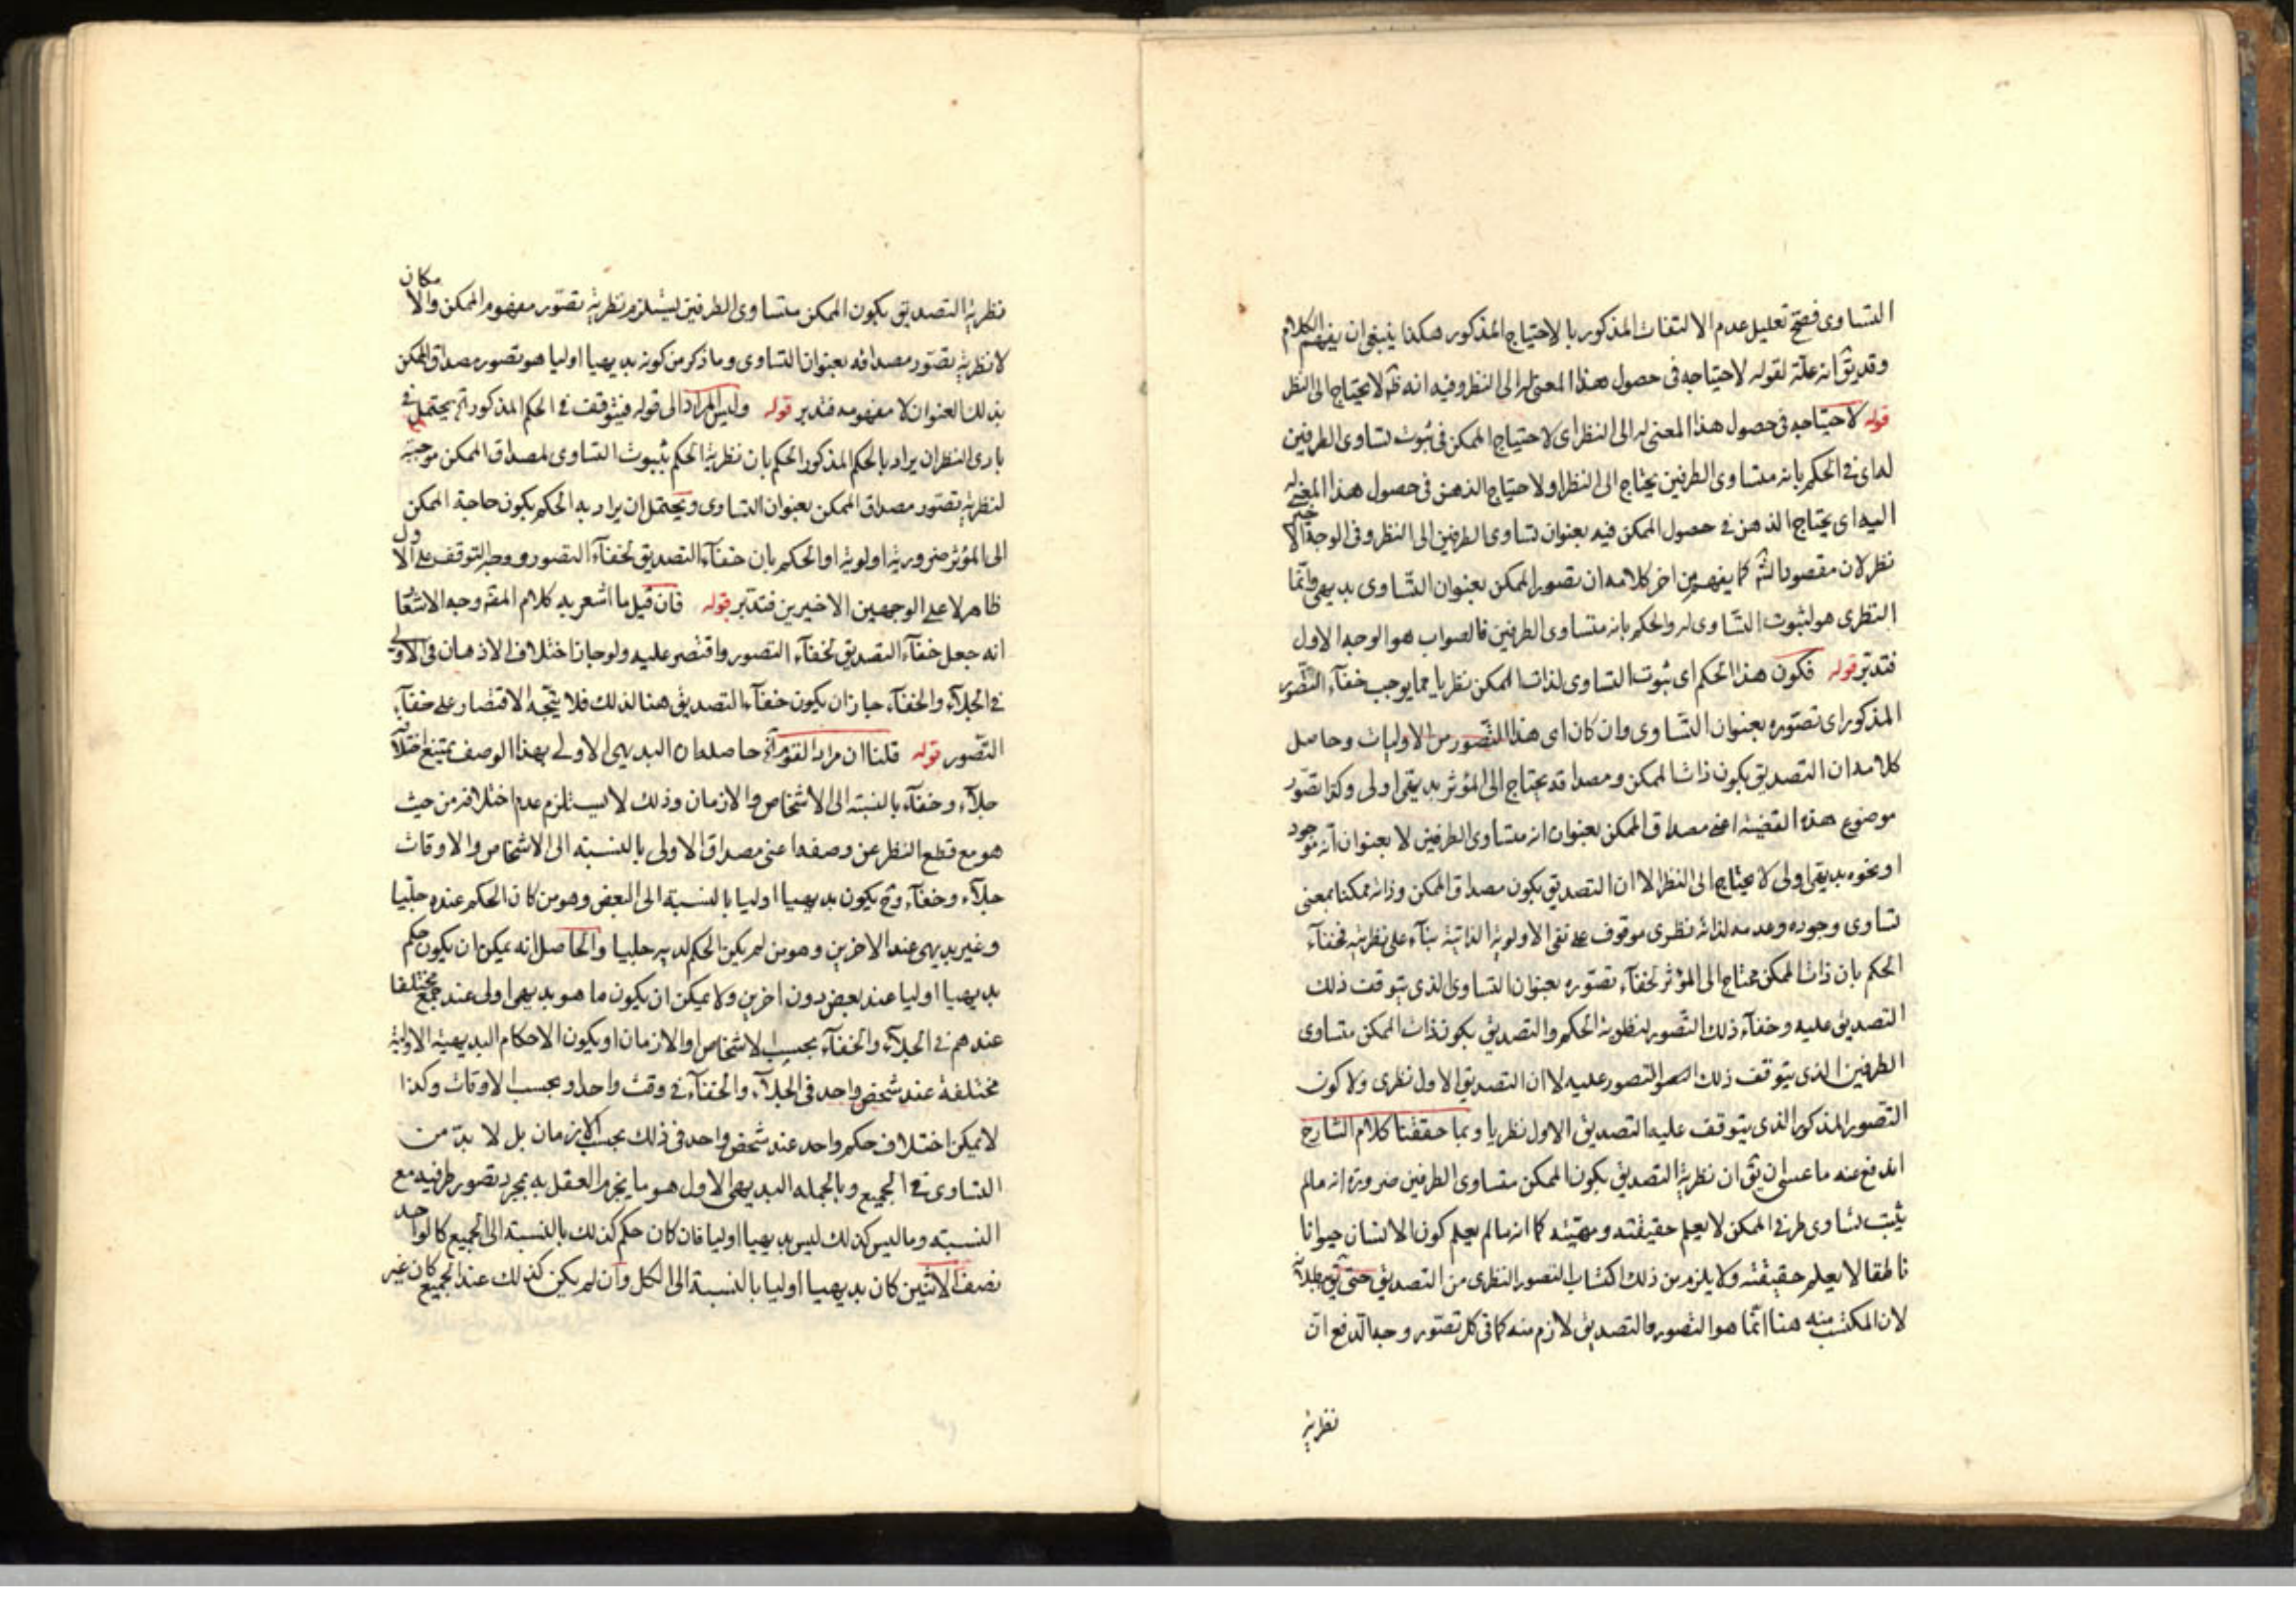 التساوى فصح تعليل عدم الالتفات المذكور بالاحتياج المذكور هكذا ينبغى ان يفهم الكلام
وقد يق انه علة لقوله لاحتياجه فى حصول هذا المعنى له الى النظر وفيه انه ظ لا يحتاج الى النظر
قوله لاحتياجه فى حصول هذا المعنى له الى النظر اى لاحتياج الممكن فى ثبوت تساوى الطرفين
له اى فى الحكم بانه متساوى الطرفين يحتاج الى النظر او لاحتياج الذهن فى حصول هذا المعنى له
اليه اى يحتاج الذهن فى حصول الممكن فيه بعنوان تساوى الطرفين الى النظر وفى الوجه الاخير
نظر لان مقصود الش كما يفهم من اخر كلامه ان تصور الممكن بعنوان التساوى بديهى وانما
النظرى هو لثبوت التساوى له والحكم بانه متساوى الطرفين فالصواب هو الوجه الاول
فتدبر قوله فكون هذا الحكم اى ثبوت التساوى لذات الممكن نظريا مما يوجب خفآء التصور
المذكور اى تصوره بعنوان التساوى وان كان اى هذا التصور من الاوليات وحاصل
كلامه ان التصديق بكون ذات الممكن ومصداقه يحتاج الى المؤثر بديهى اولى وكذا تصور
موضوع هذه القضية اعنى مصداق الممكن بعنوان انه متساوى الطرفين لا بعنوان انه موجود
او نحوه بديهى اولى لا يحتاج الى النظر الا ان التصديق بكون مصداق الممكن وذاته ممكنا بمعنى
تساوى وجوده وعدمه لذاته نظرى موقوف على نفى الاولوية الذاتية بنآء على نظريته فخفآء
الحكم بان ذات الممكن محتاج الى المؤثر لخفآء تصوره بعنوان التساوى الذى يتوقف ذلك
التصديق عليه وخفآء ذلك التصور لنظرية الحكم والتصديق بكون ذات الممكن متساوى
الطرفين الذى يتوقف ذلك التصور عليه لا ان التصديق الاول نظرى ولا كون
التصور المذكور الذى يتوقف عليه التصديق الاول نظريا وبما حققنا كلام الشارح
اندفع عنه ما عسى ان يق ان نظرية التصديق بكون الممكن متساوى الطرفين ضرورة انه مالم
يثبت تساوى طرفى الممكن لا يعلم حقيقته ومهيته كما انه مالم يعلم كون الانسان حيوانا
ناطقا لا يعلم حقيقته ولا يلزم من ذلك اكتساب التصور النظرى من التصديق حتى
لان المكتسب منه هنا انما هو التصور والتصديق لازم منه كما فى كل تصور وجه الدفع ان
نظرية
نظرية التصديق بكون الممكن متساوى الطرفين يستلزم نظرية تصور مفهوم الممكن والامكان
لا نظرية تصور مصداقه بعنوان التساوى وما ذكر من كونه بديهيا اوليا هو تصور مصداق الممكن
بذلك العنوان لا مفهومه فتدبر قوله وليس المراد الى قوله فيتوقف فى الحكم المذكور اه يحتمل فى
بادى النظر ان يراد بالحكم المذكور الحكم بان نظرية الحكم بثبوت التساوى لمصداق الممكن موجبة
لنظرية تصور مصداق الممكن بعنوان التساوى ويحتمل ان يراد به الحكم بكون حاجة الممكن
الى المؤثر ضرورية اولوية او الحكم بان خفآء التصديق لخفآء التصور ووجه التوقف على الاول
ظاهر لا على الوجهين الاخيرين فتدبر قوله فان قيل ما اشعر به كلام المقه وجه الاشعار
انه جعل خفآء التصديق لخفآء التصور واقتصر عليه ولو جاز اختلاف الاذهان فى الاولى
فى الجلآء والخفآء جاز ان يكون خفآء التصديق هنا لذلك فلا يتجه الاقتصار على خفآء
التصور قوله قلنا ان مراد القوم اه حاصله ان البديهى الاولى بهذا الوصف يمتنع اختلافه
جلآء وخفآء بالنسبة الى الاشخاص والازمان وذلك لا يستلزم عدم اختلافه من حيث
هو مع قطع النظر عن وصفه اعنى مصداق الاولى بالنسبة الى الاشخاص والاوقات
جلآء وخفآء وح يكون بديهيا اوليا بالنسبة الى البعض وهو من كان الحكم عنده جليا
وغير بديهى عند الاخرين وهو من لم يكن الحكم لديه جليا والحاصل انه يمكن ان يكون حكم
بديهيا اوليا عند بعض دون اخرين ولا يمكن ان يكون ما هو بديهى اولى عند جمع مختلفا
عندهم فى الجلآء والخفآء بحسب الاشخاص او الازمان او يكون الاحكام البديهية الاولية
مختلفة عند شخص واحد فى الجلآء والخفآء فى وقت واحد او بحسب الاوقات وكذا
لا يمكن اختلاف حكم واحد عند شخص واحد فى ذلك بحسب الازمان بل لا بد من
التساوى فى الجميع وبالجملة البديهى الاول هو ما يجزم العقل به بمجرد تصور طرفيه مع
النسبة وما ليس كذلك ليس بديهيا اوليا فان كان حكم كذلك بالنسبة الى الجميع كالواحد
نصف الاثنين كان بديهيا اوليا بالنسبة الى الكل وان لم يكن كذلك عند الجميع كان غير